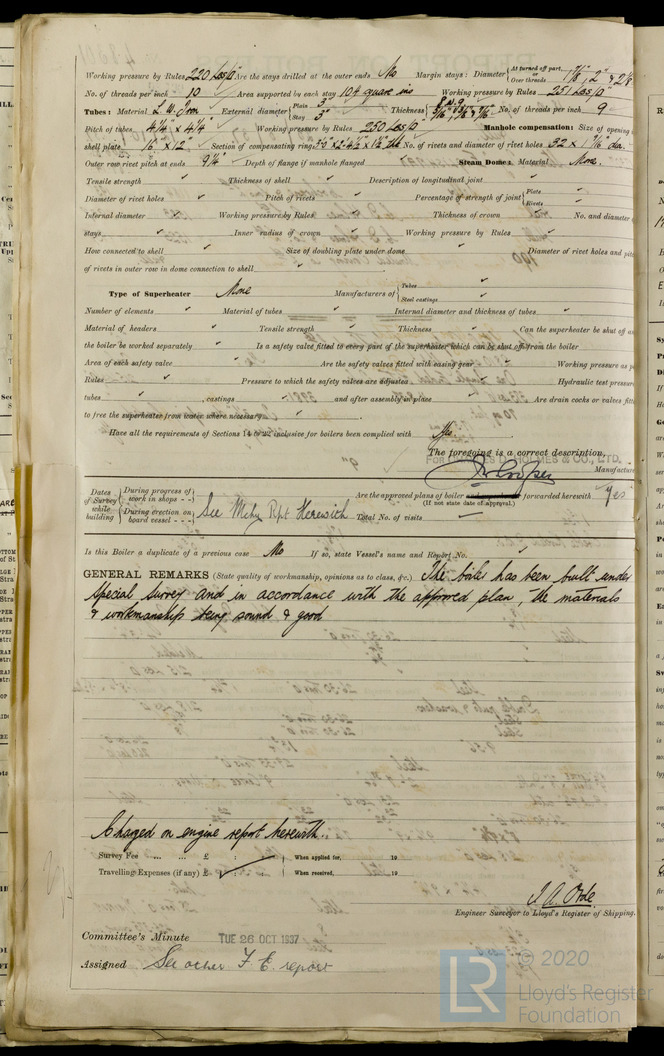 Working pressure by Rules 220 Lbs/□" Are the stays drilled at the outer ends No Margin stays: Diameter { At turned off part, or Over threads 1 7/8", 2" & 2 1/8"
No. of threads per inch 10 Area supported by each stay 104 square ins Working pressure by Rules 251 Lbs/□"
Tubes: Material L.W. Iron External diameter { Plain 3" Stay 3" Thickness { 8 W.G. No. of threads per inch 9
Pitch of tubes 4 1/4" x 4 1/4" Working pressure by Rules 230 Lbs/□" Manhole compensation: Size of opening
shell plate 16" x 12" Section of compensating ring No. of rivets and diameter of rivet holes 32 x 1 1/16" dia.
Outer row rivet pitch at ends 9 1/4" Depth of flange if manhole flanged Steam Dome: Material None.
Tensile strength Thickness of shell Description of longitudinal joint
Diameter of rivet holes Pitch of rivets Percentage of strength of joint { Plate Rivets
Internal diameter Working pressure by Rules Thickness of crown No. and diameter
stays Inner radius of crown Working pressure by Rules
How connected to shell Size of doubling plate under dome Diameter of rivet holes and
of rivets in outer row in dome connection to shell
Type of Superheater None Manufacturers of { Tubes Steel castings
Number of elements Material of tubes Internal diameter and thickness of tubes
Material of headers Tensile strength Thickness Can the superheater be shut off
the boiler be worked separately Is a safety valve fitted to every part of the superheater which can be shut off from the boiler
Area of each safety valve Are the safety valves fitted with easing gear Working pressure as
Rules Pressure to which the safety valves are adjusted Hydraulic test pressure
tubes , castings and after assembly in place Are drain cocks or valves
to free the superheater from water where necessary
Have all the requirements of Sections 14 to 22 inclusive for boilers been complied with Yes.
The foregoing is a correct description,
FOR CHARLES D. HOLMES & CO., LTD.
Manufacture
Dates of Survey while building { During progress of work in shops - - During erection on board vessel - - - See Mchy Rpt Herewith Are the approved plans of boiler forwarded herewith Yes
(If not state date of approval.)
Total No. of visits
Is this Boiler a duplicate of a previous case No If so, state Vessel's name and Report No.
GENERAL REMARKS (State quality of workmanship, opinions as to class, &c.) The boiler has been built under
special survey and in accordance with the approved plan, the materials
& workmanship being sound & good
Charged on engine report herewith.
Survey Fee ... ... £ : : When applied for, 19
Travelling Expenses (if any) £ : : When received, 19
J. A. Orde.
Engineer Surveyor to Lloyd's Register of Shipping.
Committee's Minute TUE 26 OCT 1937
Assigned See other F. E. report
LR © 2020
Lloyd's Register
Foundation